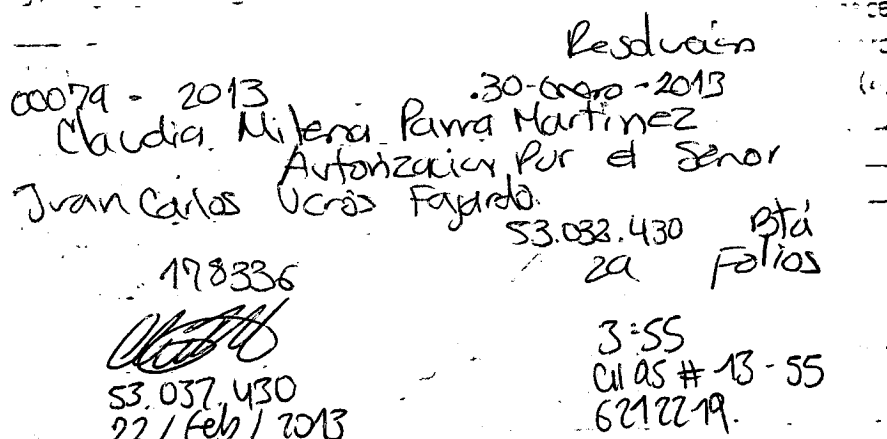 Resolución
00079 - 2013 30-enero-2013
Claudia Milena Parra Martinez
Autorizacion Por el Senor
Juan Carlos Ucros Fajardo.
53.032.430 Btá
29 Folios
178336
3:55
53.037.430 Cll 95 # 13-55
22/Feb/2013 6212219.